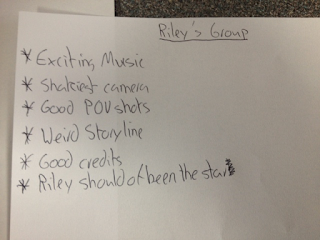 Riley's Group
* Exciting Music
* Shakiest camera
* Good POV shots
* Weird Storyline
* Good credits
* Riley should of been the star